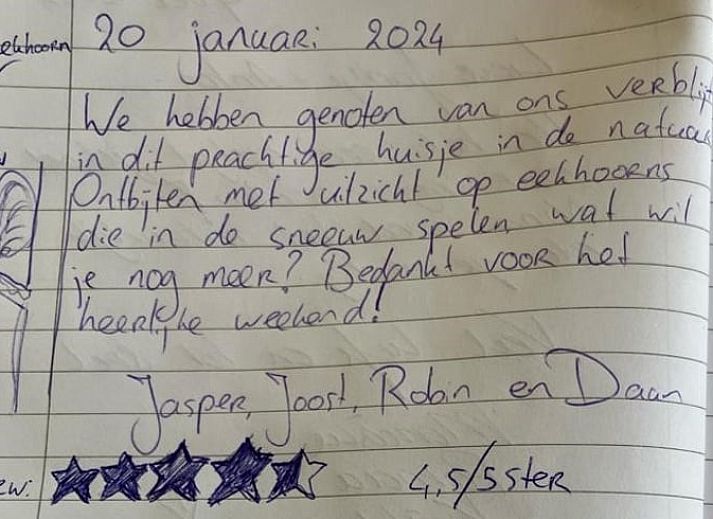 eekhoorn 20 januari 2024
We hebben genoten van ons verblijf
in dit prachtige huisje in de natuur
Ontbijten met uitzicht op eekhoorns
die in de sneeuw spelen, wat wil
je nog meer? Bedankt voor het
heerlijke weekend!
Jasper, Joost, Robin en Daan
ew: 4,5/5 ster